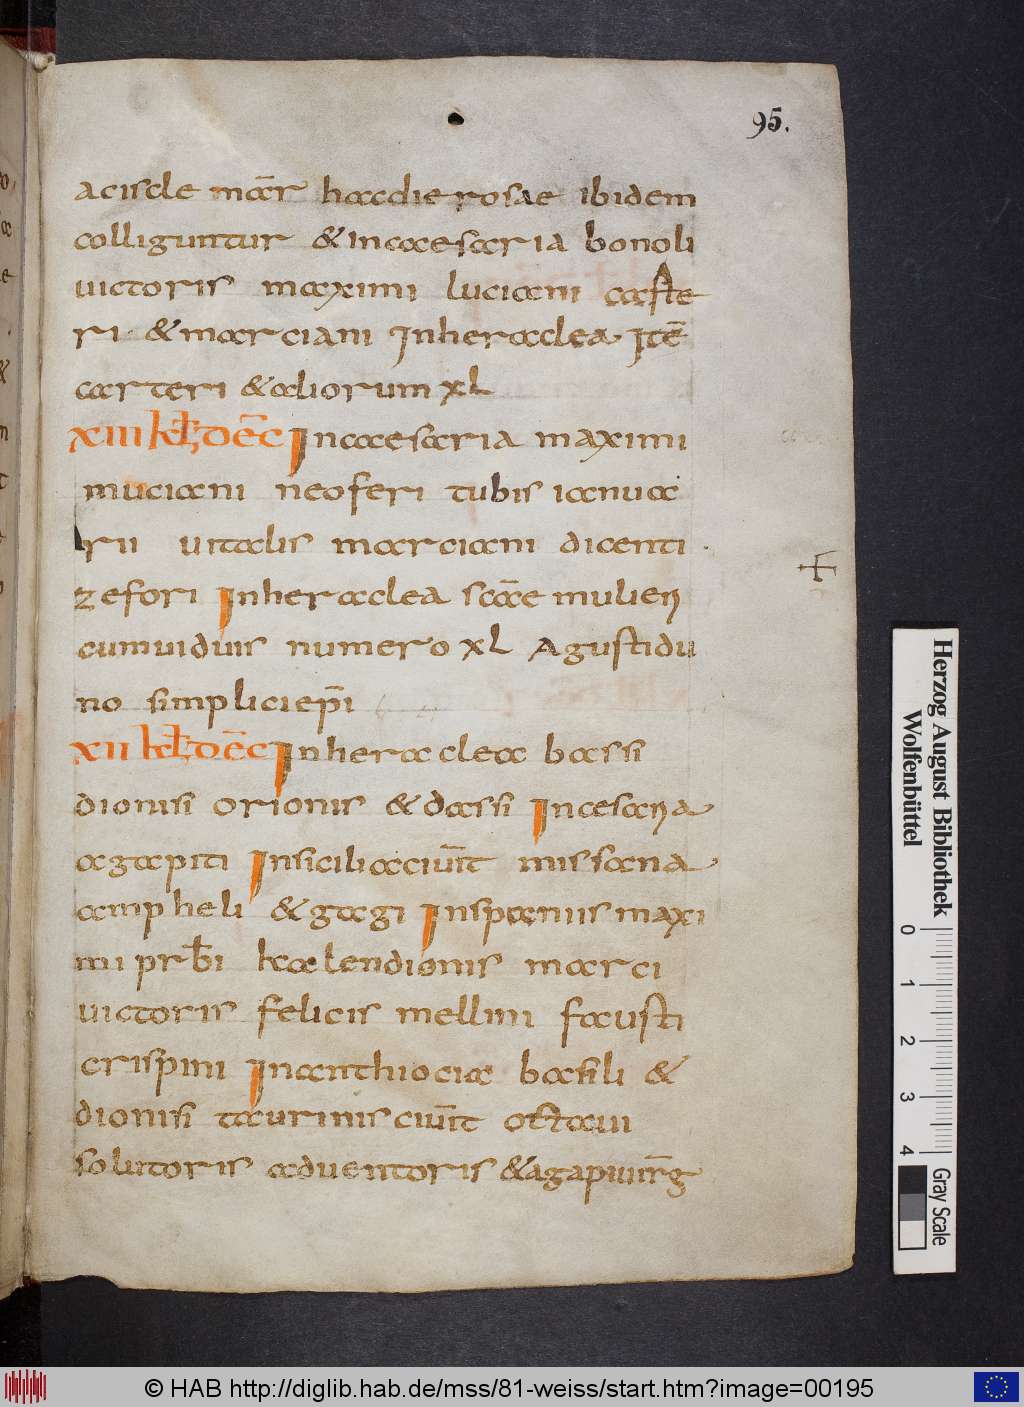 95.
aciscle mar̄ hacdie rosae ibidem
colliguntur & incaesaria bonoli
uictoris maximi luciani caste
ri & marciani Inheraclea Itē
carteri & aliorum xl
XIII kl dēc Incaesaria maximi
muciani neoferi tubis ianua
rii uitalis marciani dicenti
zeferi Inheraclea scāe mulier
cumuiduis numero xl Agustidu
no simpliciepī
XII kl dēc Inheraclea bassi
dionisi orionis & dassi Incesaria
agapiti Insiciliaciuīt missana
ampheli & gagi Inspaniis maxi
mi prb̄i kalendionis marci
uictoris felicis mellini fausti
crispini Inanthiocia basili &
dionisi taurinis ciuīt ottaui
solutoris aduentoris & agapiuir̄g
Herzog August Bibliothek
Wolfenbüttel
0 1 2 3 4
Gray Scale
© HAB http://diglib.hab.de/mss/81-weiss/start.htm?image=00195